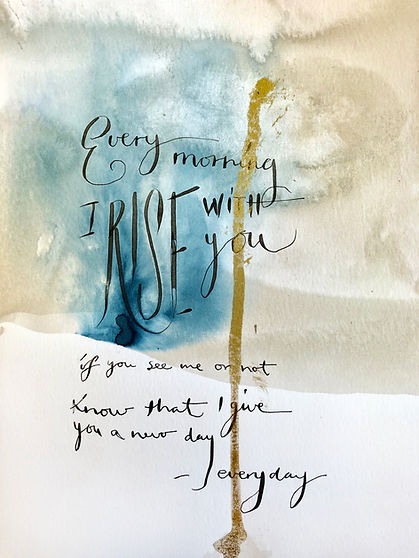 Every morning
I RISE WITH
you
if you see me or not
Know that I give
you a new day
– everyday